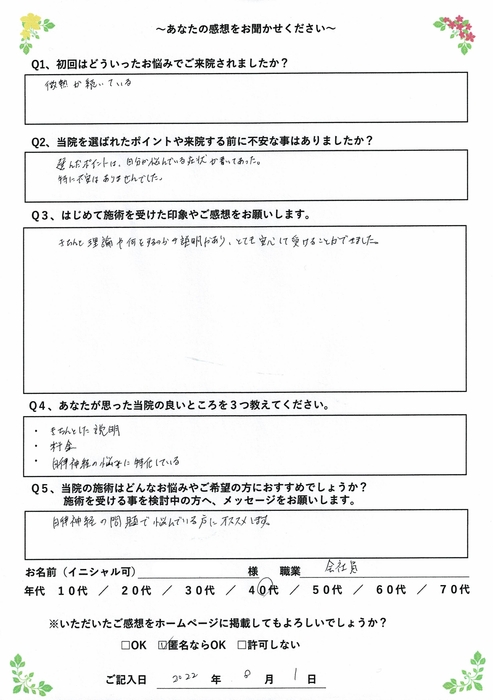 ～あなたの感想をお聞かせください～
Q1、初回はどういったお悩みでご来院されましたか？
微熱が続いている
Q2、当院を選ばれたポイントや来院する前に不安な事はありましたか？
選んだポイントは、自分が悩んでいる症状が書いてあった。
特に不安はありませんでした。
Q３、はじめて施術を受けた印象やご感想をお願いします。
きちんと理論や何をするのかの説明があり、とても安心して受けることができました。
Q４、あなたが思った当院の良いところを３つ教えてください。
・ きちんとした説明
・ 料金
・ 自律神経の悩みに特化している
Q５、当院の施術はどんなお悩みやご希望の方におすすめでしょうか？
施術を受ける事を検討中の方へ、メッセージをお願いします。
自律神経の問題で悩んでいる方にオススメします。
お名前（イニシャル可） 様 職業 会社員
年代 １０代 ／ ２０代 ／ ３０代 ／ ４０代 ／ ５０代 ／ ６０代 ／ ７０代
※いただいたご感想をホームページに掲載してもよろしいでしょうか？
□OK ☑匿名ならOK □許可しない
ご記入日 2022 年 8 月 1 日